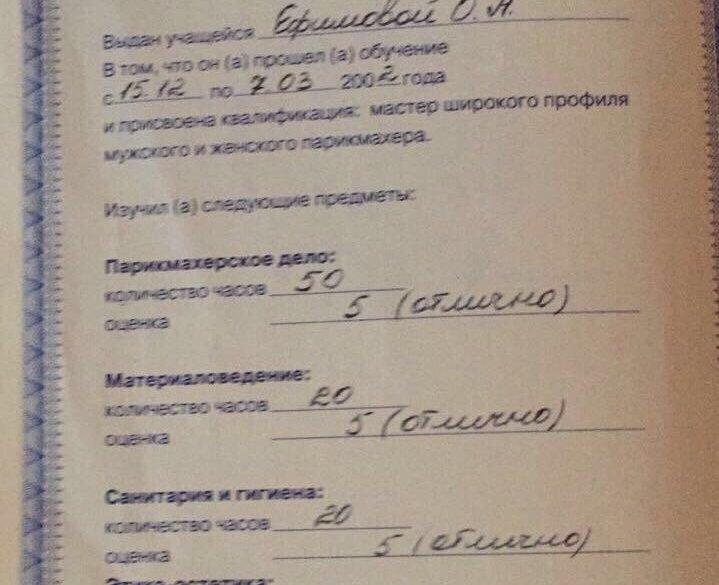 Выдан учащейся Ефимовой О. А.
В том, что он (а) прошел (а) обучение
с 15.12 по 7 03 2002 года
и присвоена квалификация: мастер широкого профиля
мужского и женского парикмахера.
Изучил (а) следующие предметы:
Парикмахерское дело:
количество часов 50
оценка 5 (отлично)
Материаловедение:
количество часов 20
оценка 5 (отлично)
Санитария и гигиена:
количество часов 20
оценка 5 (отлично)